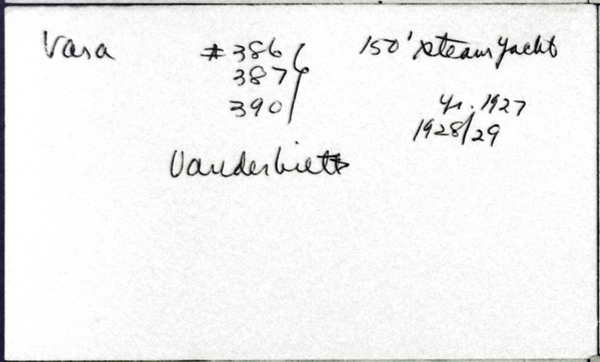 Vara #386 150' steam yacht
387
390 yr. 1927
1928/29
Vanderbilt